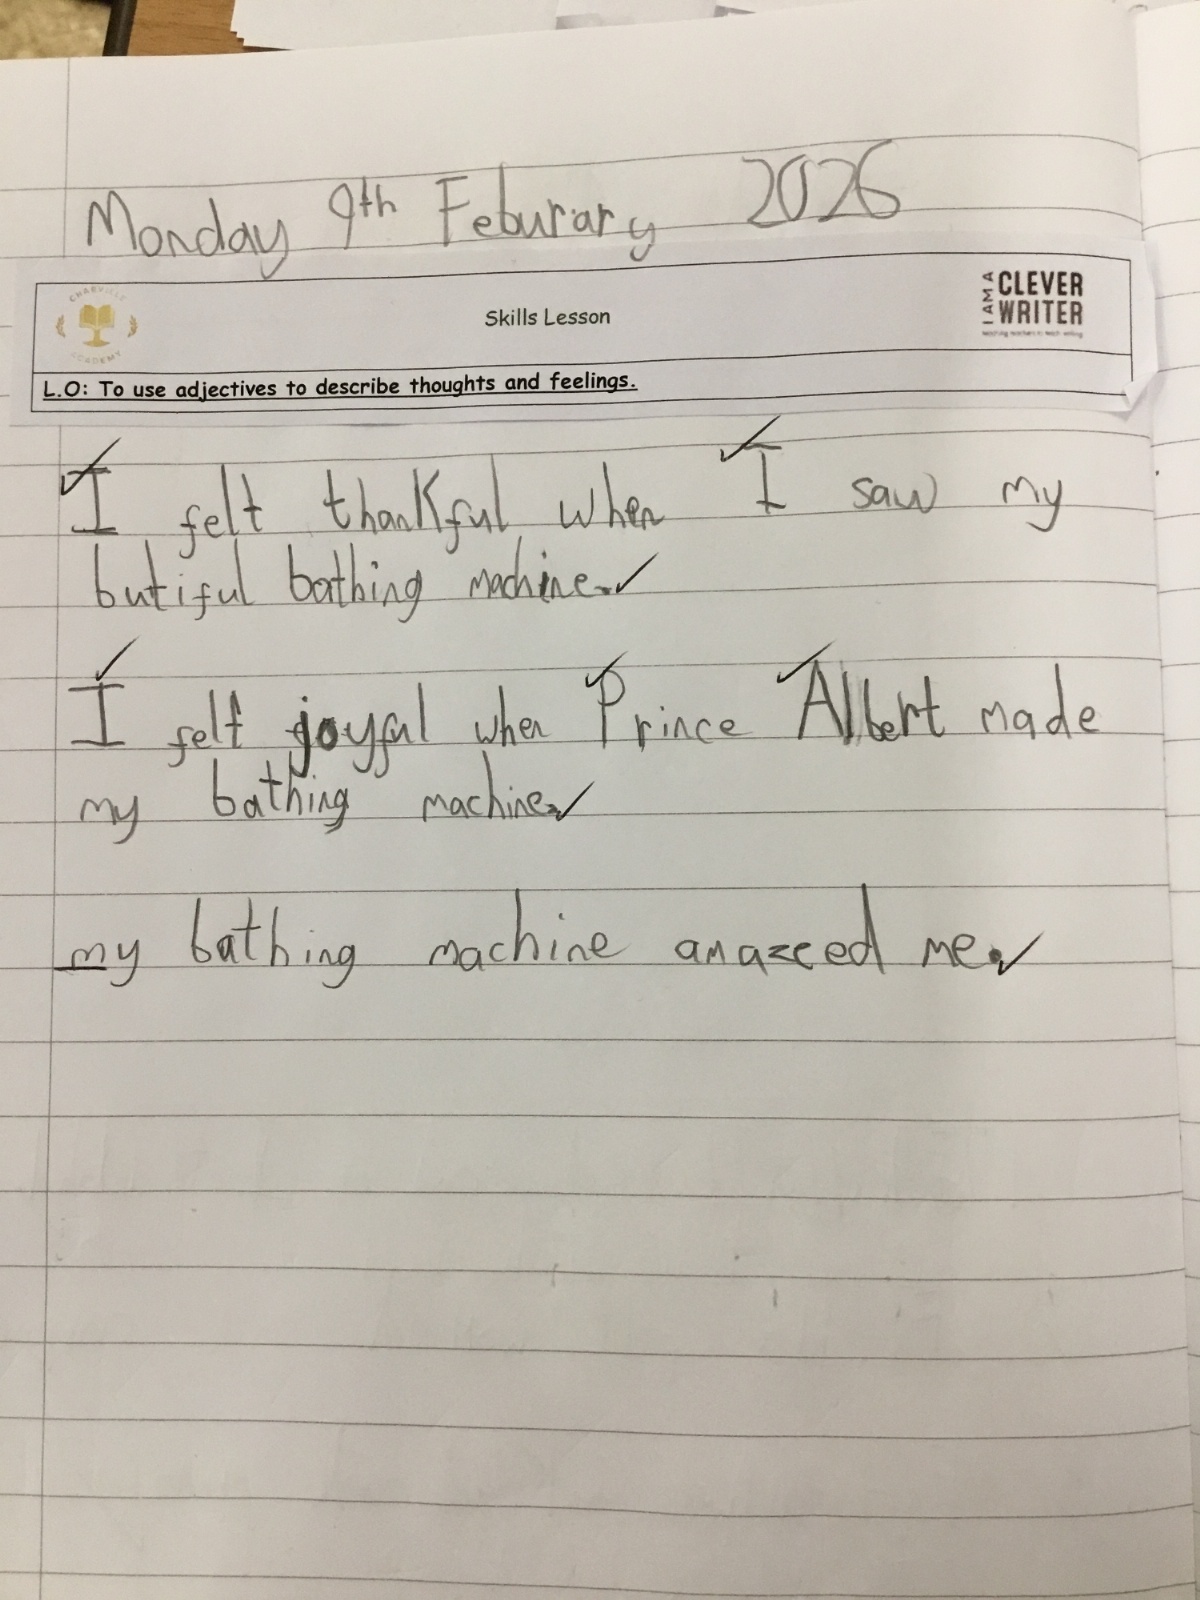 Monday 9th Feburary 2026
CHARVILLE ACADEMY
Skills Lesson
I AM A CLEVER WRITER
L.O: To use adjectives to describe thoughts and feelings.
I felt thankful when I saw my
butiful bathing machine.
I felt joyful when Prince Albert made
my bathing machine.
my bathing machine amazeed me.